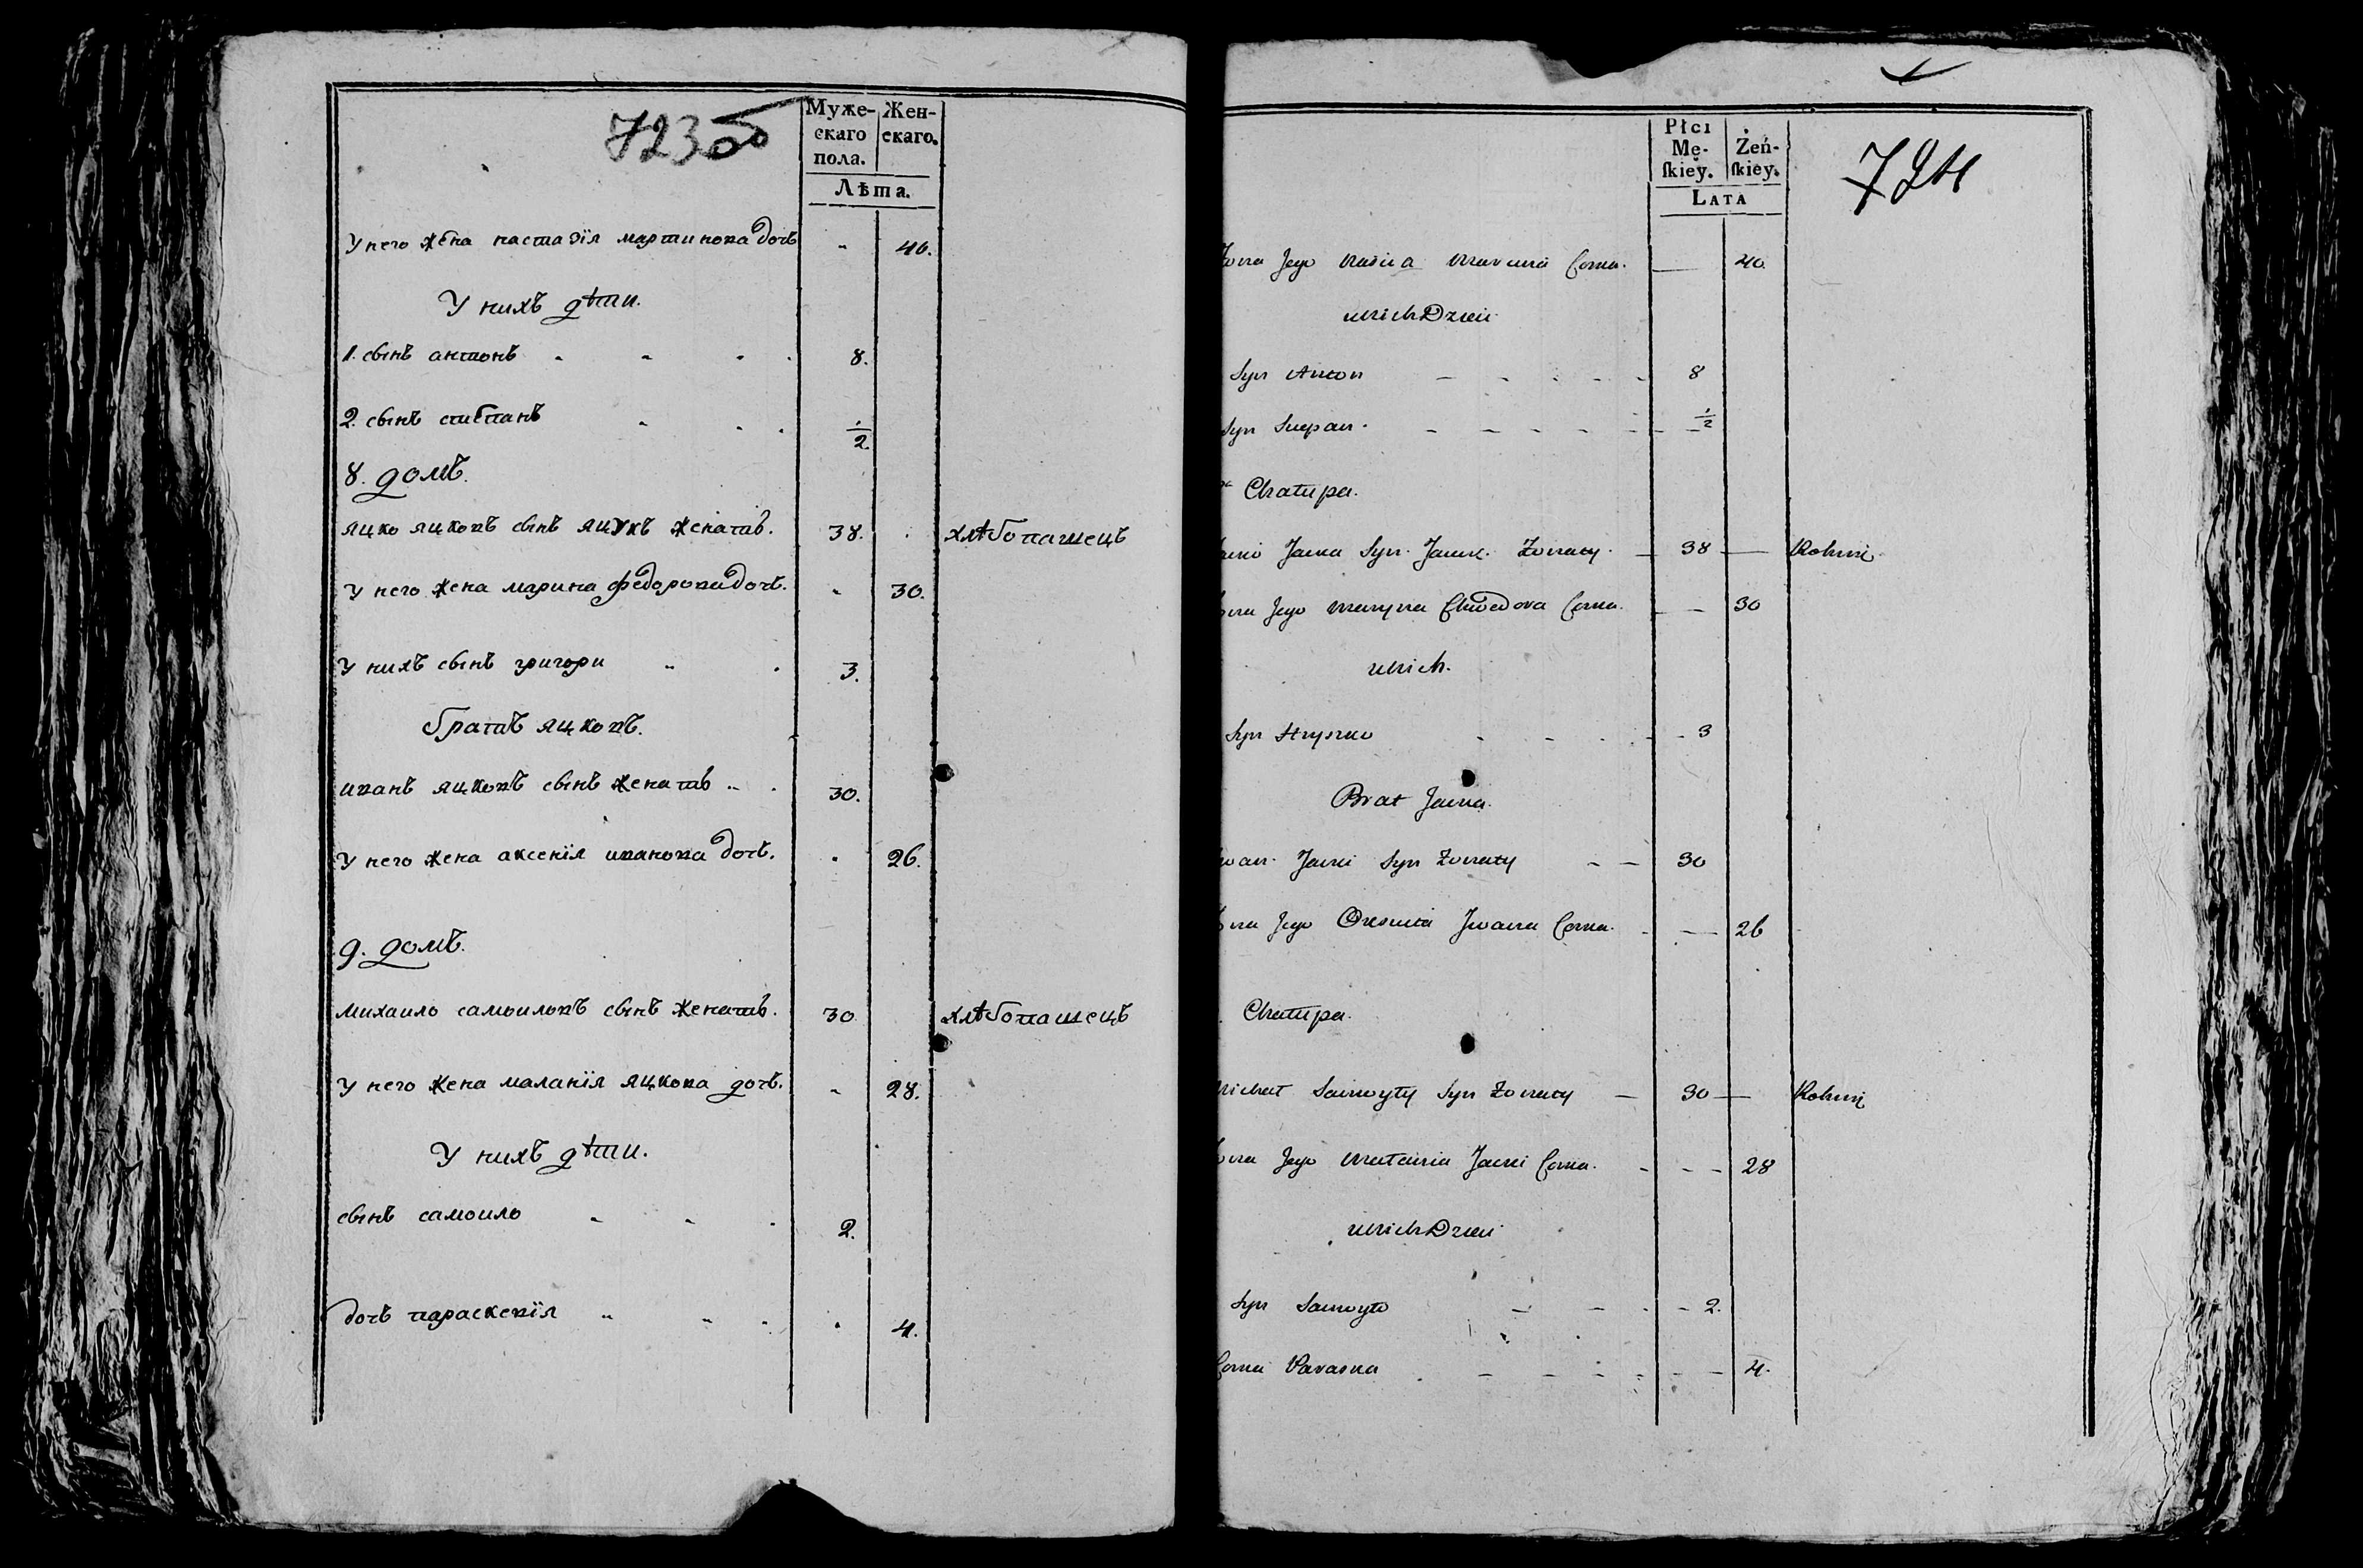 723об
Муже-
скаго
пола.
Жен-
скаго.
Лѣта.
У него жена настазїя мартинова дочь - 40.
У нихъ дѣти.
1. сынъ антонъ 8.
2. сынъ стѣпанъ 1/2
8. домъ.
яцко яцковъ сынъ яцукъ женатъ. 38. хлѣбопашецъ
У него жена марина федорова дочь. - 30.
У нихъ сынъ григори 3.
братъ яцковъ.
иванъ яцковъ сынъ женатъ 30.
У него жена аксенїя иванова дочь. 26.
9. домъ.
михаило самоиловъ сынъ женатъ. 30 хлѣбопашецъ
У него жена маланїя яцкова дочь. - 28.
У нихъ дѣти.
сынъ самоило 2.
дочь параскевїя 4.
Płci
Mę-
skiey.
Żeń-
skiey.
LATA
724
Jego Córka. — 40.
u nich Dzieci
Syn Anton 8
Syn Stepan 1/2
Chałupa.
Jacka Syn Jacuk Żonaty. — 38 — Rolnik
Jego Maryna Chwedora Córka. — 30
u nich.
Syn Hryszko 3
Brat Jacka.
Jacki Syn Żonaty — — 30
Jego Oxenia Iwana Córka. — 26
Chałupa.
Michał Samoyły Syn Żonaty — 30 — Rolnik
Jego Małania Jacki Córka. - - - 28
u nich Dzieci
Syn Samoyło 2.
Córka Paraska 4.